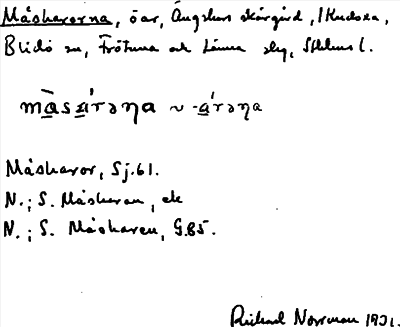 Måskarorna, öar, Ängskärs skärgård, i Kudoxa,
Blidö sn, Frötuna och Länna slg, Sthlms l.
mà̱sa̱ŕəŋa ~ -a̱ŕəŋa
Måskaror, Sj. 61.
N.; S. Måskaran, ek
N.; S. Måskaren, G.85.
Richard Norrman 1931.